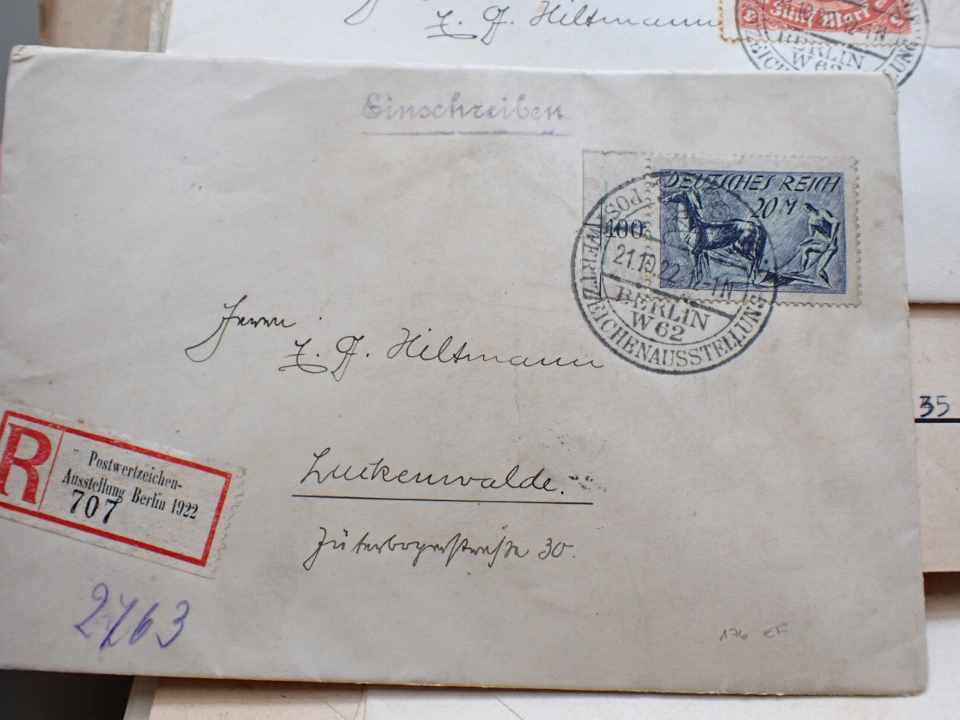 Z. F. Hiltmann
Fünf Mark
BERLIN
W 62
Einschreiben
DEUTSCHES REICH
20 M
100
POSTWERTZEICHENAUSSTELLUNG
21.10.22
-1N
BERLIN
W 62
Herrn
Z. F. Hiltmann
Luckenwalde.
Jüterbogerstraße 30.
R
Postwertzeichen-
Ausstellung Berlin 1922
707
2763
35
176 EF